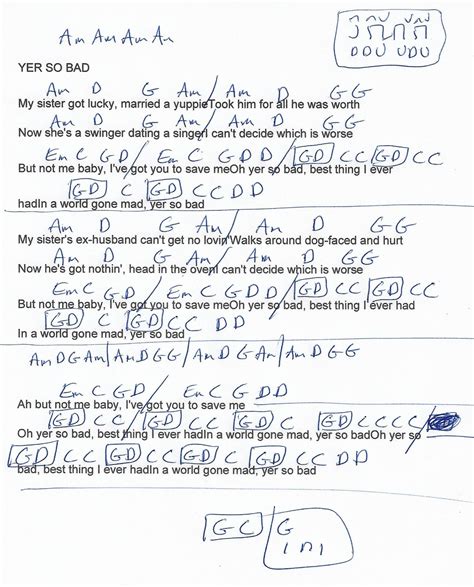 Am Am Am Am
DDU UDU
YER SO BAD
Am D G Am / Am D G G
My sister got lucky, married a yuppieTook him for all he was worth
Am D G Am / Am D G G
Now she's a swinger dating a singerI can't decide which is worse
Em C G D / Em C G D D / GD C C GD C C
But not me baby, I've got you to save meOh yer so bad, best thing I ever
GD C GD C C D D
hadIn a world gone mad, yer so bad
Am D G Am / Am D G G
My sister's ex-husband can't get no lovin'Walks around dog-faced and hurt
Am D G Am / Am D G G
Now he's got nothin', head in the ovenI can't decide which is worse
Em C G D / Em C G D D / GD C C GD C C
But not me baby, I've got you to save meOh yer so bad, best thing I ever had
GD C GD C C D D
In a world gone mad, yer so bad
Am D G Am / Am D G G / Am D G Am / Am D G G
Em C G D / Em C G D D
Ah but not me baby, I've got you to save me
GD C C / GD C C GD C GD C C C C /
Oh yer so bad, best thing I ever hadIn a world gone mad, yer so badOh yer so
GD C C GD C C GD C GD C C D D
bad, best thing I ever hadIn a world gone mad, yer so bad
G C / G